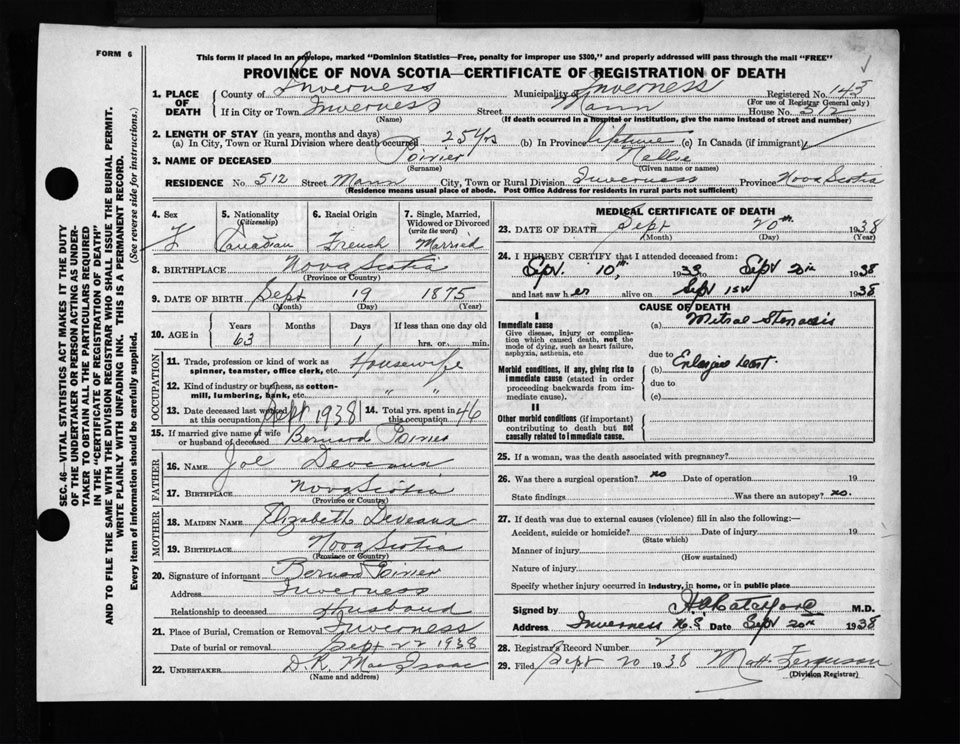 FORM 6
This form if placed in an envelope, marked "Dominion Statistics—Free, penalty for improper use $300," and properly addressed will pass through the mail "FREE"
PROVINCE OF NOVA SCOTIA—CERTIFICATE OF REGISTRATION OF DEATH
1. PLACE OF DEATH County of Inverness Municipality of Inverness Registered No. 143
(For use of Registrar General only)
If in City or Town Inverness Street Mann House No. 512
(Name) (If death occurred in a hospital or institution, give the name instead of street and number)
2. LENGTH OF STAY (in years, months and days)
(a) In City, Town or Rural Division where death occurred 25 Yrs (b) In Province lifetime (c) In Canada (if immigrant)
3. NAME OF DECEASED Poirier Nellie
(Surname) (Given name or names)
RESIDENCE No. 512 Street Mann City, Town or Rural Division Inverness Province Nova Scotia
(Residence means usual place of abode. Post Office Address for residents in rural parts not sufficient)
SEC. 46—VITAL STATISTICS ACT MAKES IT THE DUTY
OF THE UNDERTAKER OR PERSON ACTING AS UNDER-
TAKER TO OBTAIN ALL THE PARTICULARS REQUIRED
IN THE "CERTIFICATE OF REGISTRATION OF DEATH"
AND TO FILE THE SAME WITH THE DIVISION REGISTRAR WHO SHALL ISSUE THE BURIAL PERMIT.
WRITE PLAINLY WITH UNFADING INK. THIS IS A PERMANENT RECORD.
Every item of information should be carefully supplied. (See reverse side for instructions.)
4. Sex 5. Nationality 6. Racial Origin 7. Single, Married,
(Citizenship) Widowed or Divorced
(write the word)
F Canadian French Married
8. BIRTHPLACE Nova Scotia
(Province or Country)
9. DATE OF BIRTH Sept 19 1875
(Month) (Day) (Year)
10. AGE in Years Months Days If less than one day old
63 1 hrs. or min.
OCCUPATION
11. Trade, profession or kind of work as
spinner, teamster, office clerk, etc. Housewife
12. Kind of industry or business, as cotton-
mill, lumbering, bank, etc. " "
13. Date deceased last worked 14. Total yrs. spent in
at this occupation Sept 1938 this occupation 46
15. If married give name of wife
or husband of deceased Bernard Poirier
FATHER
16. NAME Joe Deveaux
17. BIRTHPLACE Nova Scotia
(Province or Country)
MOTHER
18. MAIDEN NAME Elizabeth Deveaux
19. BIRTHPLACE Nova Scotia
(Province or Country)
20. Signature of informant Bernard Poirier
Address Inverness
Relationship to deceased Husband
21. Place of Burial, Cremation or Removal Inverness
Date of burial or removal Sept 22 1938
22. UNDERTAKER D.R. MacIsaac
(Name and address)
MEDICAL CERTIFICATE OF DEATH
23. DATE OF DEATH Sept 20th 1938
(Month) (Day) (Year)
24. I HEREBY CERTIFY that I attended deceased from:
Sept. 10th, 1933 to Sept 20th 1938
and last saw her alive on Sept 1st 1938
CAUSE OF DEATH
I
Immediate cause (a) Mitral Stenosis
Give disease, injury or complica-
tion which caused death, not the
mode of dying, such as heart failure,
asphyxia, asthenia, etc due to
Morbid conditions, if any, giving rise to (b)
immediate cause (stated in order due to
proceeding backwards from im-
mediate cause). (c)
II
Other morbid conditions (if important)
contributing to death but not
causally related to immediate cause.
25. If a woman, was the death associated with pregnancy?
26. Was there a surgical operation? no Date of operation 19
State findings Was there an autopsy? no.
27. If death was due to external causes (violence) fill in also the following:—
Accident, suicide or homicide? Date of injury 19
(State which)
Manner of injury
(How sustained)
Nature of injury
Specify whether injury occurred in industry, in home, or in public place
Signed by M.D.
Address Inverness N.S. Date Sept 20th 1938
28. Registrar's Record Number
29. Filed Sept 20 1938 Matt. Ferguson
(Division Registrar)